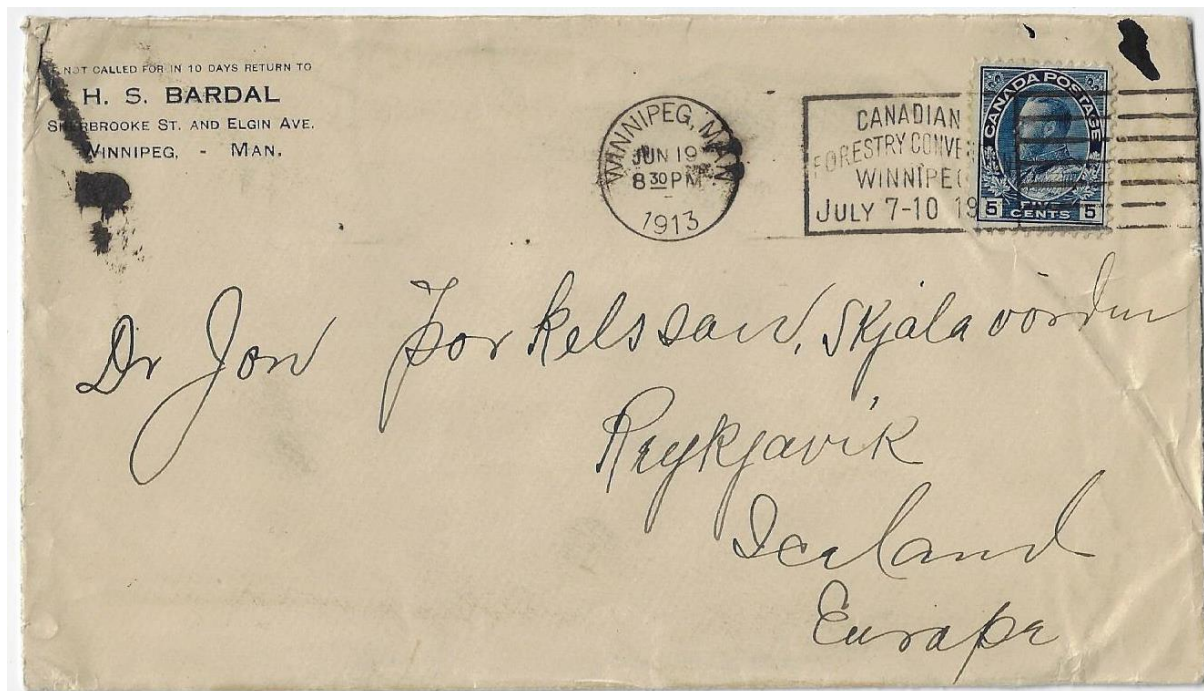 NOT CALLED FOR IN 10 DAYS RETURN TO
H. S. BARDAL
SHERBROOKE ST. AND ELGIN AVE.
WINNIPEG, - MAN.
WINNIPEG, MAN
JUN 19
8 30 PM
1913
CANADIAN
FORESTRY CONVE
WINNIPEG
JULY 7-10 19
CANADA POSTAGE
5 FIVE CENTS 5
Dr Jon Þorkelsson, Skjalavördur
Reykjavik
Iceland
Europe